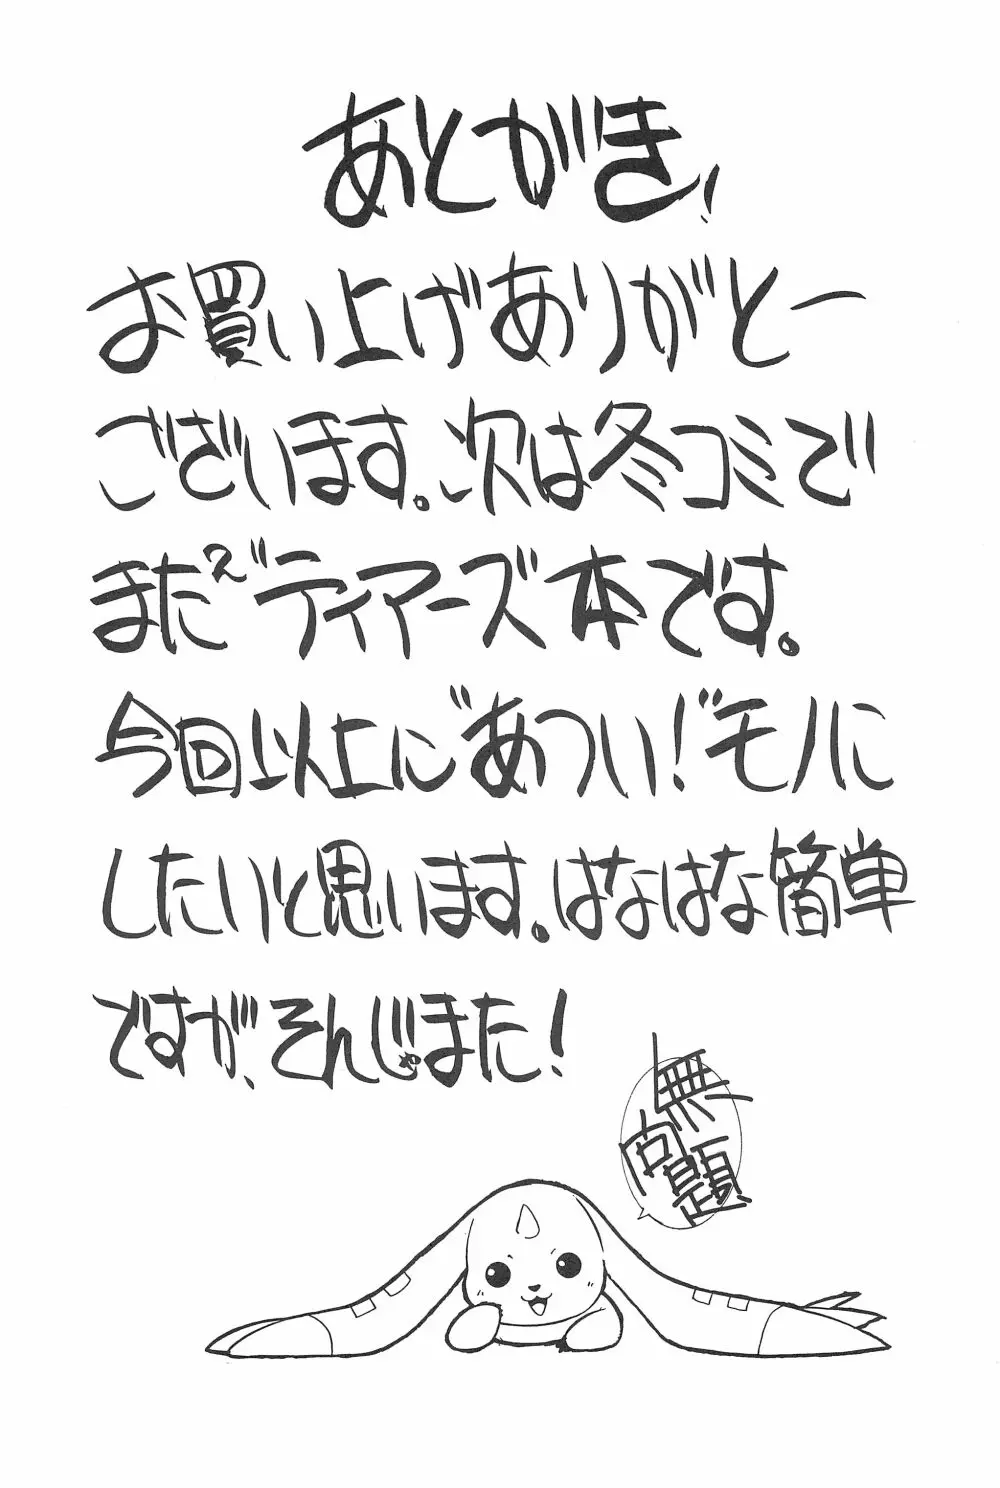 あとがき!
お買い上げありがとー
ございます。次は冬コミで
まだ〝ティアーズ本です。
今回以上に〝あつい!〟モノに
したいと思います。はなはな簡単
ですが、そんじゃまた!
無
問題